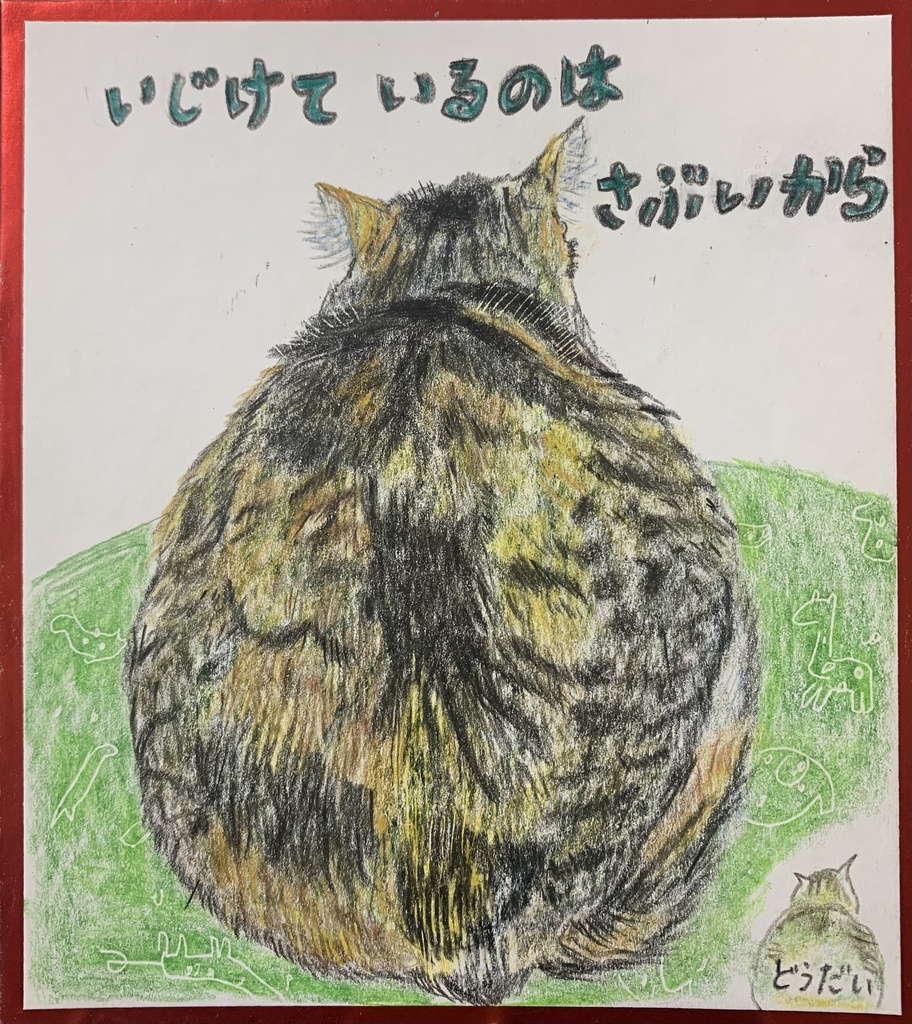 いじけて いるのは
さぶいから
どうだい